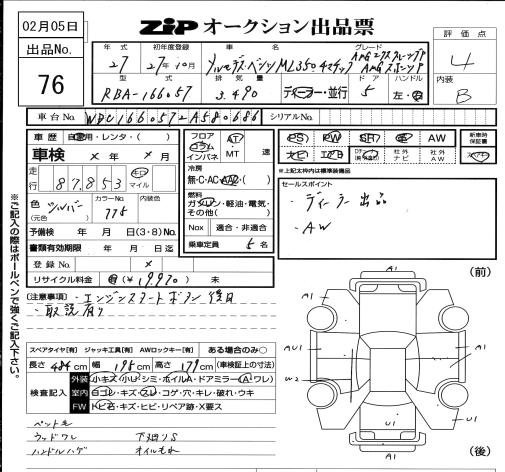 02月05日
ZiP オークション出品票
出品No.
76
評価点
4
内装
B
年式 初年度登録 車名 グレード
27 27年10月
型式 排気量 ドア ハンドル
RBA-166057 3.490 ディーラー・並行 5 左・右
車台No. WDC1660572A580686 シリアルNo.
車歴 自家用・レンタ・( )
車検 × 年 × 月
走行 87,853 キロ マイル
色 (元色) シルバー カラーNo. 775 内装色
予備検 年 月 日(3・8) No.
書類有効期限 年 月 日迄
登録No. ×
リサイクル料金 有(¥19,970) 未
フロア コラム インパネ
AT MT 速
冷房
無・C・AC・AAC・( )
燃料
ガソリン・軽油・電気・その他( )
Nox 適合・非適合
乗車定員 5名
PS PW SR AW 新車時保証書
ナビ エアB 社外ナビ 社外AW
※上記太枠内は標準装備品
セールスポイント
・ディーラー出品
・AW
※ご記入の際はボールペンで強くご記入下さい。
【注意事項】・エンジンスタートボタン後日
・取説有り
スペアタイヤ[有] ジャッキ工具[有] AWロックキー[有] ある場合のみ○
長さ 484cm 幅 195cm 高さ 179cm (車検証上の寸法)
検査記入
外装 小キズ・小ヒシミ・ホイルA・ドアミラー(A)ワレ)
室内 ヨゴレ・キズ・スレ・コゲ・穴・キレ・破れ・ウキ
FW トビ石・キズ・ヒビ・リペア跡・X要ス
ペット毛
ウッドワレ 下廻りS
ハンドルハゲ オイルもれ
(前)
A1
A1 A1
AU1 A1
W2
U1 U1
A1
(後)